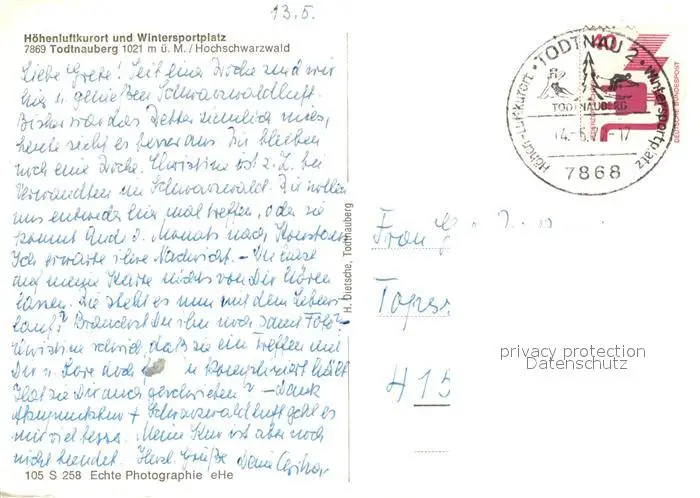 13.5.
Höhenluftkurort und Wintersportplatz
7869 Todtnauberg 1021 m ü. M. / Hochschwarzwald
Liebe Grete! Seit einer Woche sind wir
hier u. genießen Schwarzwaldluft.
Bisher war das Wetter ziemlich mies,
heute sieht es besser aus. Wir bleiben
noch eine Woche. Christine ist z. Z. bei
Verwandten im Schwarzwald. Wir wollen
uns entweder hier mal treffen, oder sie
kommt Ende d. Monats nach Konstanz.
Ich erwarte ihre Nachricht. – Du hast
auf meine Karte nichts von Dir hören
lassen. Wie steht es nun mit dem Lebens-
lauf? Brauchst Du ihn noch samt Foto? –
Christine schrieb, daß sie ein Treffen mit
Dir u. Lore noch
Hat sie Dir auch geschrieben? – Dank
Akupunktur + Schwarzwaldluft geht es
mir viel besser. Meine Kur ist aber noch
nicht beendet. Herzl. Grüße Deine
105 S 258 Echte Photographie eHe
H. Dietsche, Todtnauberg
TODTNAU 2
Höhen-Luftkurort · Wintersportplatz
TODTNAUBERG
7868
DEUTSCHE BUNDESPOST
Frau
415
privacy protection
Datenschutz